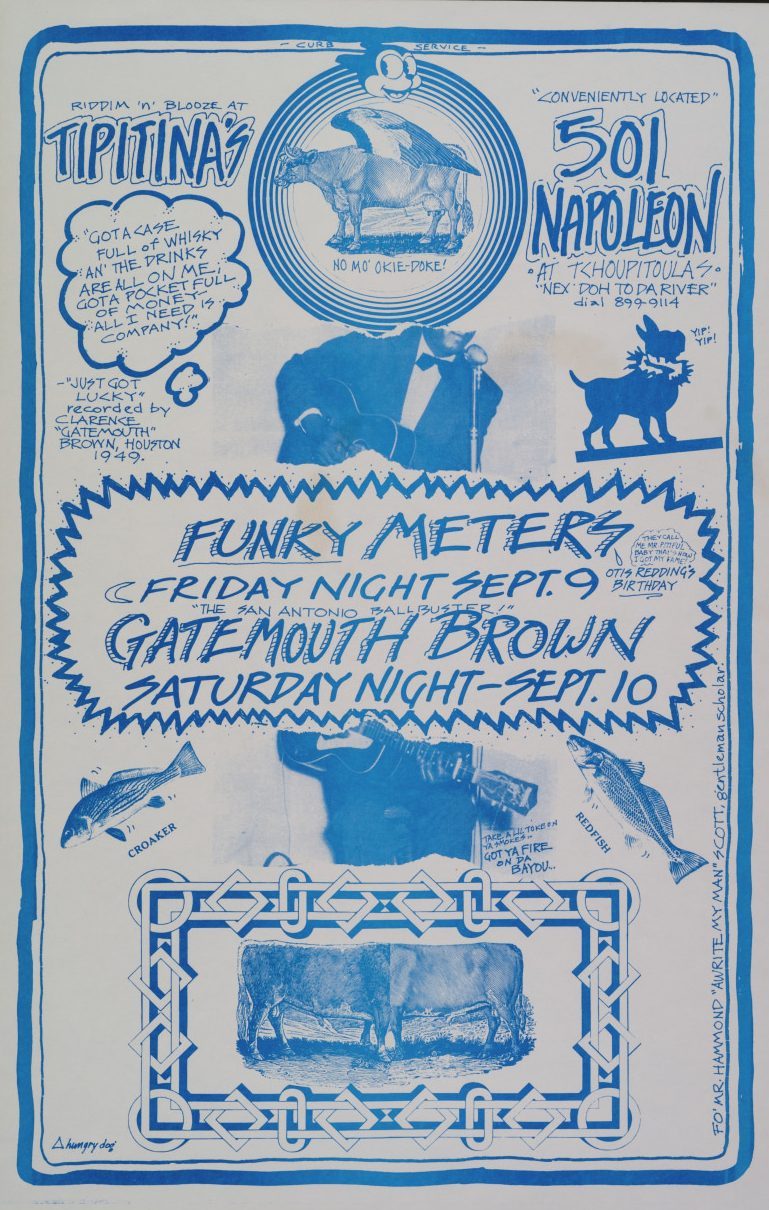 - CURB SERVICE -
RIDDIM 'n' BLOOZE AT
TIPITINA'S
"GOTA CASE
FULL of WHISKY
AN' THE DRINKS
ARE ALL ON ME,
GOTA POCKET FULL
OF MONEY-
ALL I NEED IS
COMPANY!"
-"JUST GOT
LUCKY"
recorded by
CLARENCE
"GATEMOUTH"
BROWN, HOUSTON
1949.
NO MO' OKIE-DOKE!
"CONVENIENTLY LOCATED"
501
NAPOLEON
• AT TCHOUPITOULAS •
"NEX' DOH TO DA RIVER"
dial 899-9114
YIP!
YIP!
FUNKY METERS
FRIDAY NIGHT SEPT. 9
THEY CALL
ME MR. PITIFUL
BABY THAT'S HOW
I GOT MY FAME!
OTIS REDDING'S
BIRTHDAY
"THE SAN ANTONIO BALLBUSTER!"
GATEMOUTH BROWN
SATURDAY NIGHT-SEPT. 10
CROAKER
REDFISH
TAKE A LIL' TOKE ON
YA SMOKES..
GOT YA FIRE
ON DA
BAYOU..
FO' MR. HAMMOND "AWRITE MY MAN" SCOTT, gentleman scholar.
hungry dog